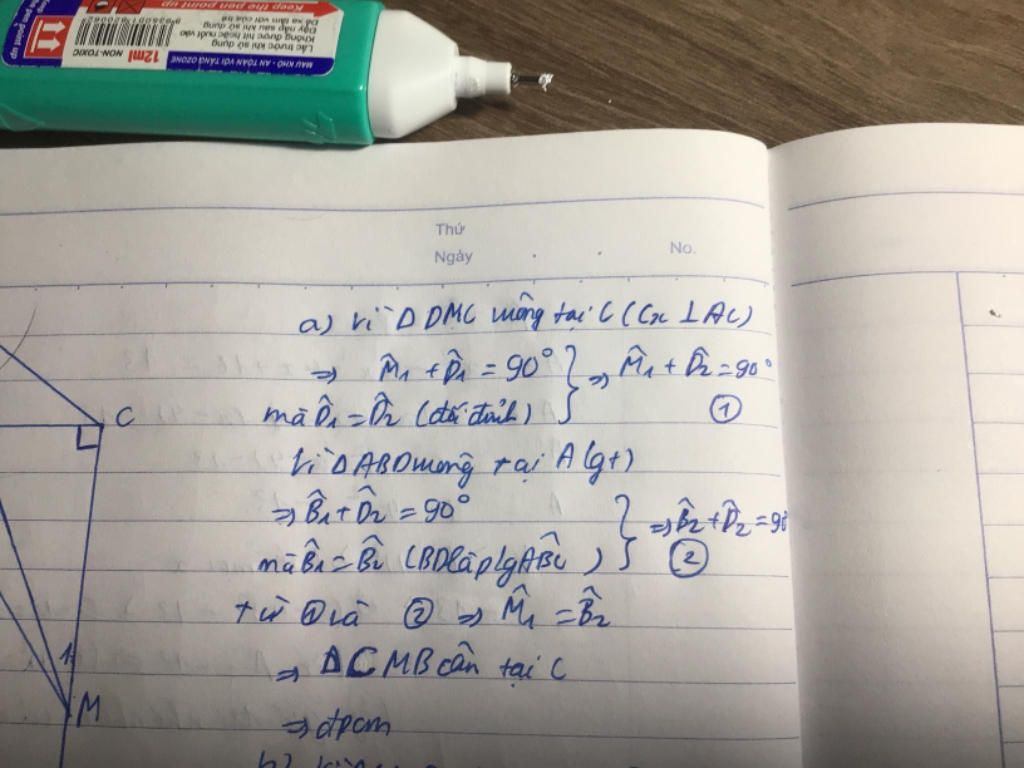 Keep the pen point up
MÀU KHÔ - AN TOÀN VỚI TẦNG OZONE
Lắc trước khi sử dụng
Không được hít hoặc nuốt vào
Đậy nắp sau khi sử dụng
Để xa tầm với của trẻ
12ml NON-TOXIC
Thứ
Ngày
No.
a) Vì Δ DMC vuông tại C (Cx ⊥ AC)
=> M̂₁ + D̂₁ = 90° } => M̂₁ + D̂₂ = 90°
mà D̂₁ = D̂₂ (đối đỉnh) ①
Vì Δ ABD vuông tại A (gt)
=> B̂₁ + D̂₂ = 90° } => B̂₂ + D̂₂ = 90°
mà B̂₁ = B̂₂ (BD là p/g AB̂C) ②
từ ① và ② => M̂₁ = B̂₂
=> ΔCMB cân tại C
=> đpcm
b)
C
1
M